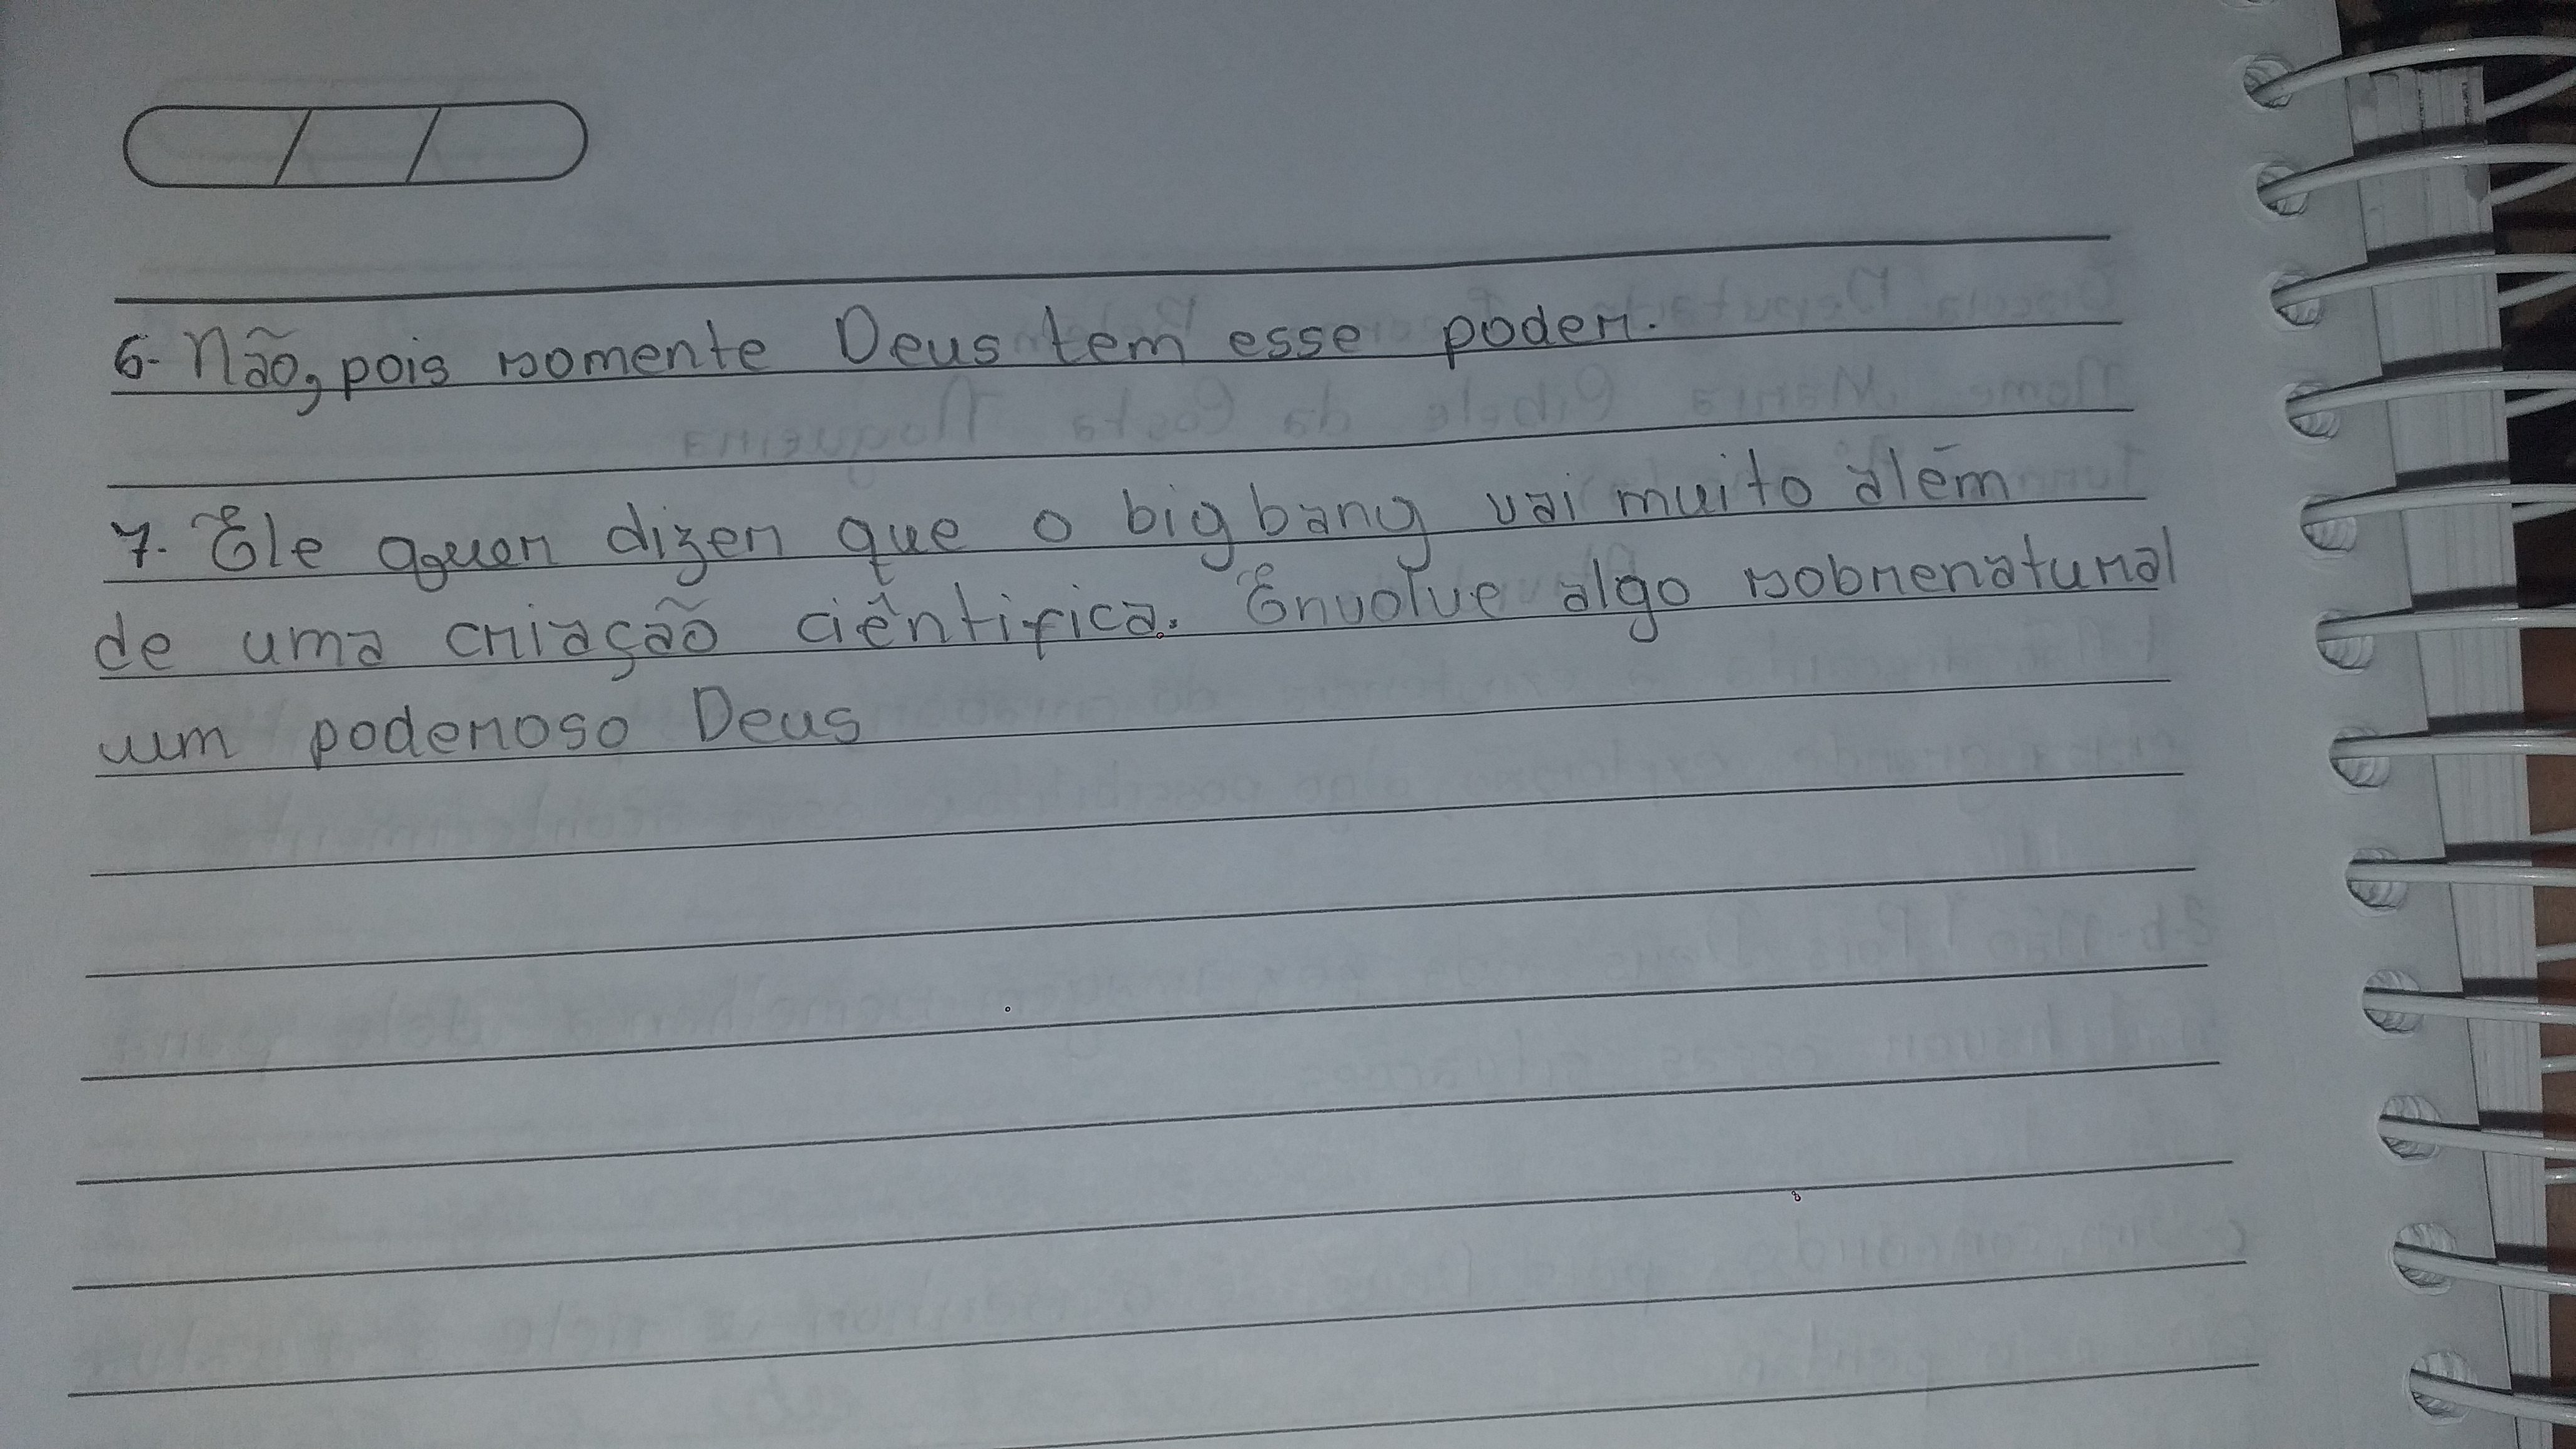 6- Não, pois somente Deus tem esse poder.
7. Ele quer dizer que o big bang vai muito além
de uma criação ciêntifica. Envolve algo sobrenatural
um poderoso Deus